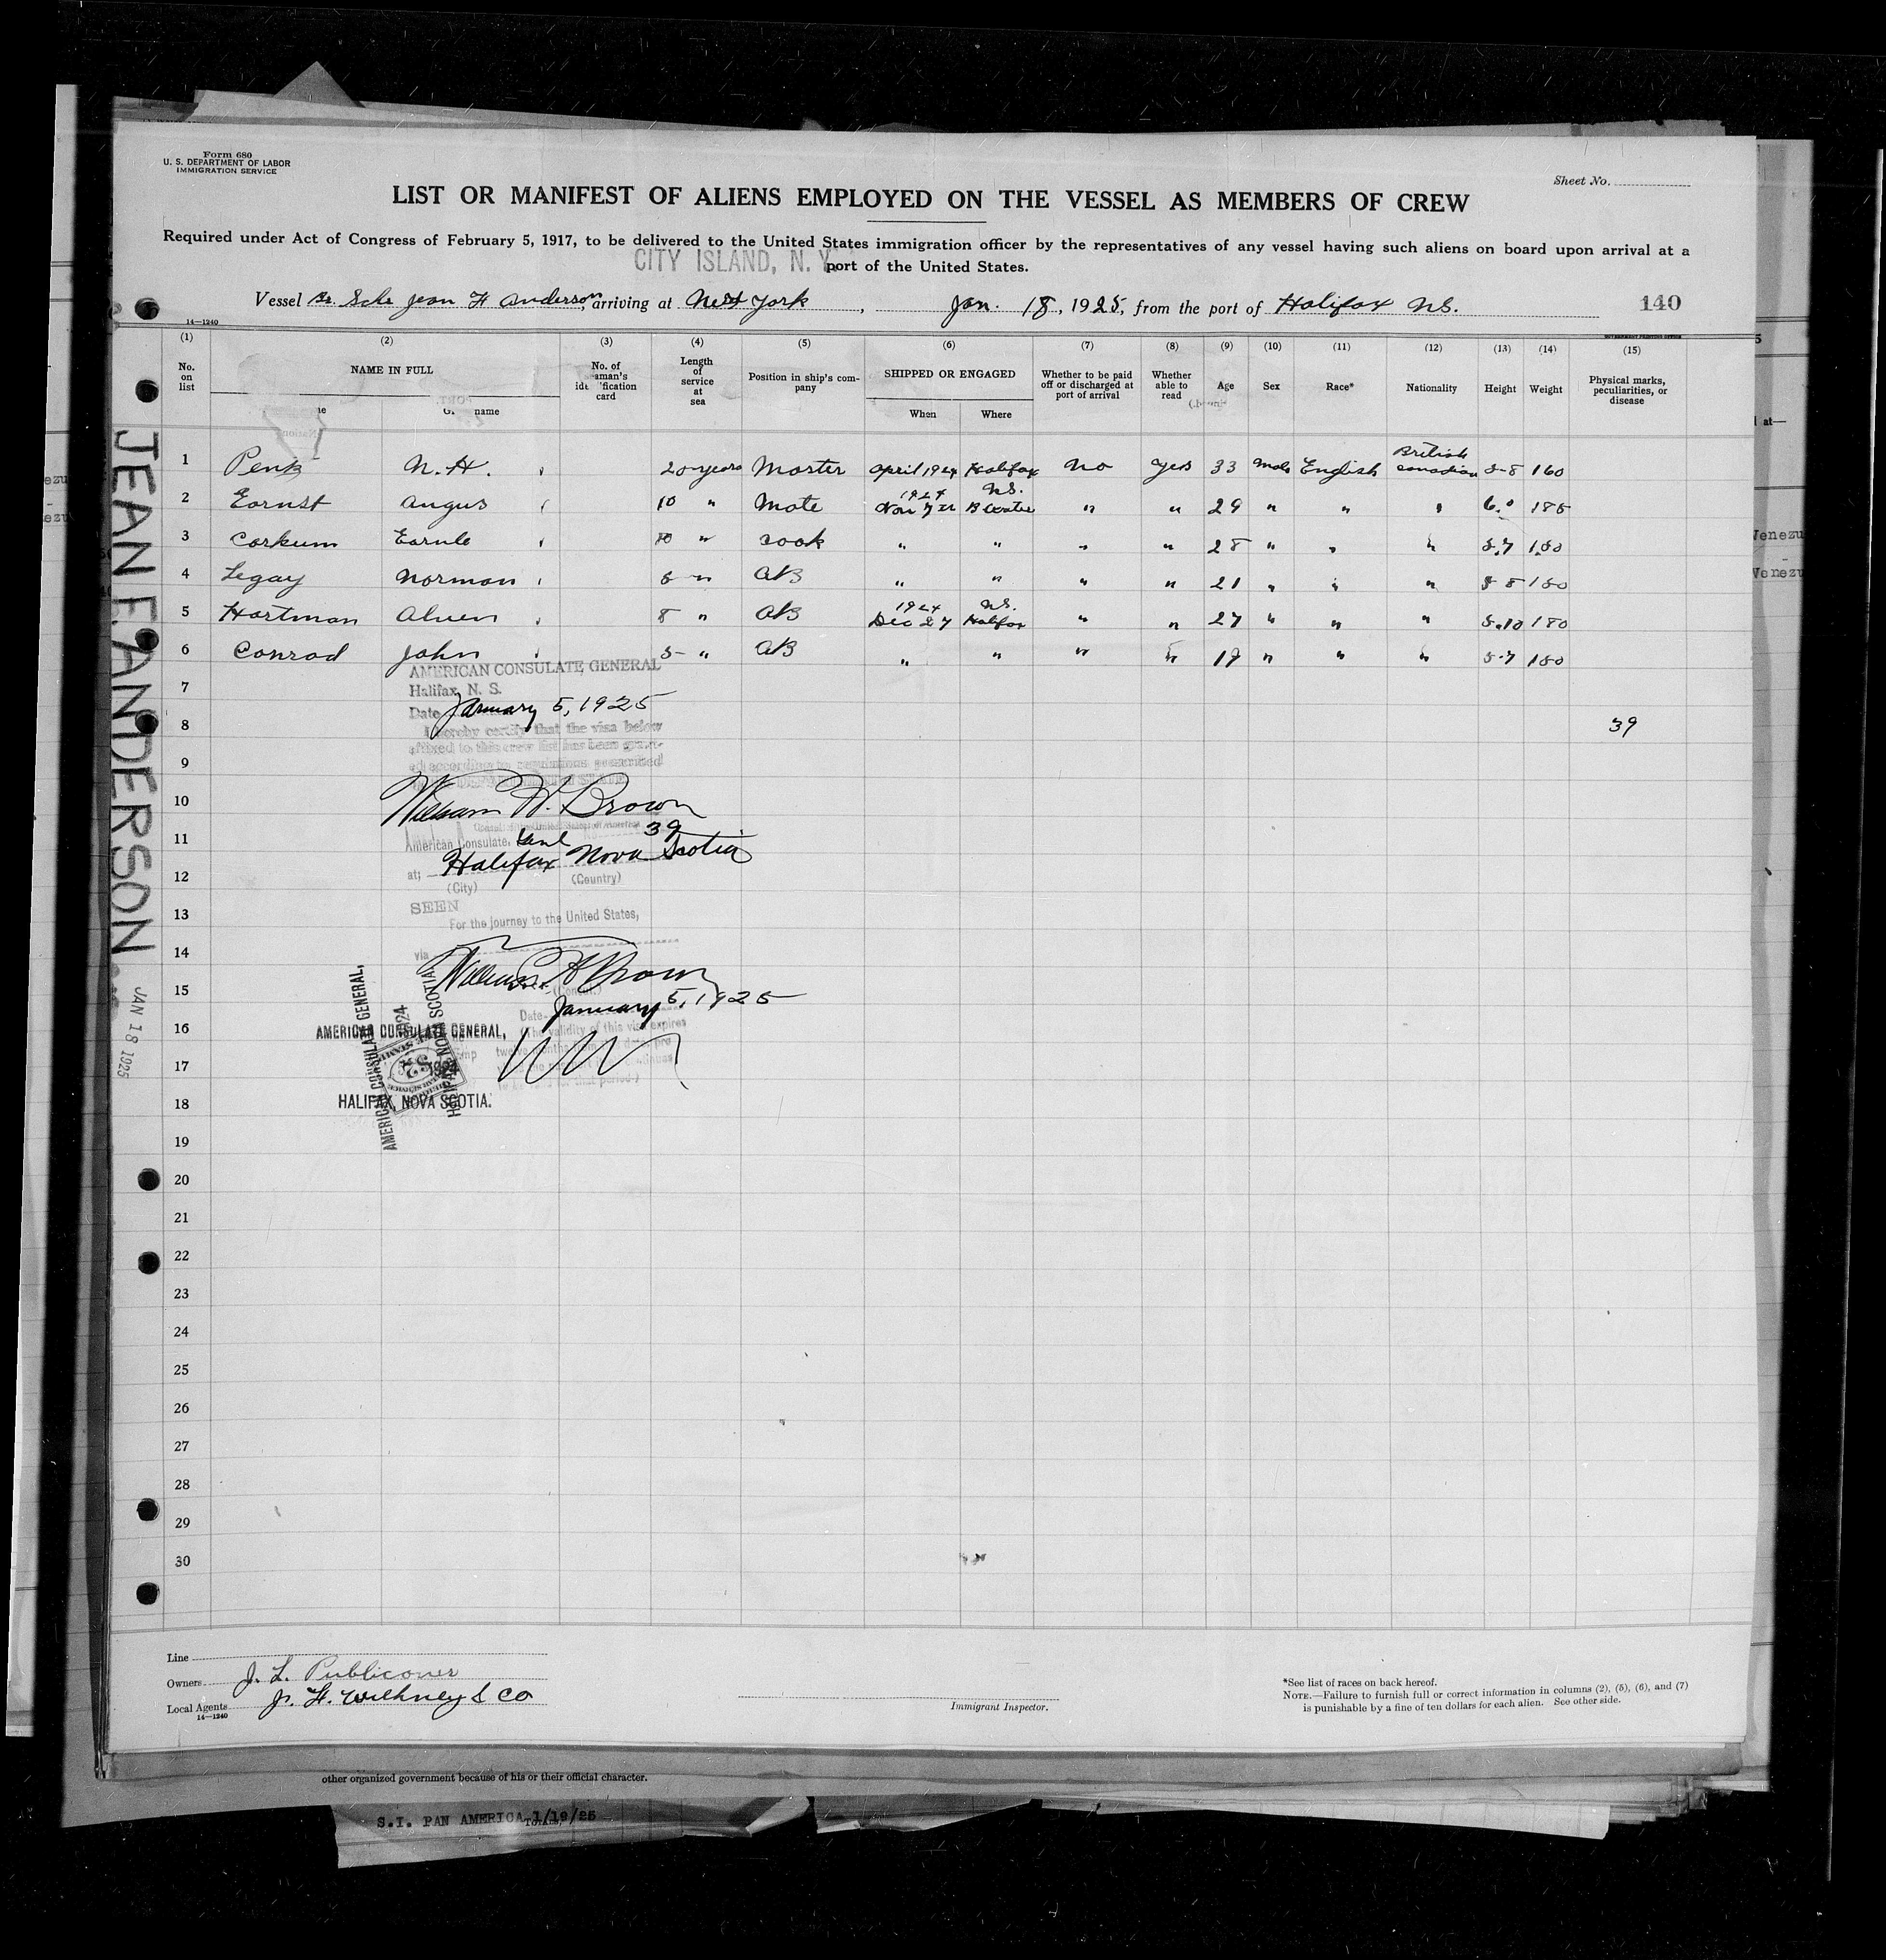 Form 680
U. S. DEPARTMENT OF LABOR
IMMIGRATION SERVICE
Sheet No.
LIST OR MANIFEST OF ALIENS EMPLOYED ON THE VESSEL AS MEMBERS OF CREW
Required under Act of Congress of February 5, 1917, to be delivered to the United States immigration officer by the representatives of any vessel having such aliens on board upon arrival at a
CITY ISLAND, N. Y.
port of the United States.
Vessel Br. Schr Jean F Anderson, arriving at New York, Jan. 18, 1925, from the port of Halifax NS.
140
14—1240
GOVERNMENT PRINTING OFFICE
(1) (2) (3) (4) (5) (6) (7) (8) (9) (10) (11) (12) (13) (14) (15)
No. on list
NAME IN FULL
No. of
Length of service at sea
Position in ship's company
SHIPPED OR ENGAGED
When Where
Whether to be paid off or discharged at port of arrival
Whether able to read
Age Sex Race* Nationality Height Weight
Physical marks, peculiarities, or disease
1 Penk N. H. 20 years Master April 1924 Halifax No Yes 33 Male English British Canadian 5-8 160
2 Earnst Angus 10 " Mate 1924 Nov NS. " " 29 " " " 6.0 185
3 Corkum Earnle 10 " Cook " " " " 28 " " " 5.7 150
4 Legay Norman 5 " AB " " " " 21 " " " 5 8 150
5 Hartman Alven 8 " AB 1924 Dec 27 NS. Halifax " " 27 " " " 5.10 180
6 Conrad John 5 " AB " " " " 19 " " " 5.7 150
7
8 39
9
10
11
12
13
14
15
16
17
18
19
20
21
22
23
24
25
26
27
28
29
30
AMERICAN CONSULATE GENERAL
Halifax, N. S.
Date January 5, 1925
I hereby certify that the visa below
affixed to this crew list has been grant-
ed according to regulations prescribed
William W. Brown
39
American Consulate Genl
at; Halifax Nova Scotia
(City) (Country)
SEEN
For the journey to the United States,
via
William W Brown
(Consul.)
Date January 5, 1925
(The validity of this visa expires
twelve months from
AMERICAN CONSULATE GENERAL,
1924
HALIFAX, NOVA SCOTIA.
AMERICAN CONSULATE GENERAL,
1924
HALIFAX, NOVA SCOTIA.
JEAN F. ANDERSON
JAN 18 1925
Line
Owners J. L. Publicover
Local Agents J. F. Whitney & Co
14—1240
Immigrant Inspector.
*See list of races on back hereof.
NOTE.—Failure to furnish full or correct information in columns (2), (5), (6), and (7)
is punishable by a fine of ten dollars for each alien. See other side.
other organized government because of his or their official character.
S.I. PAN AMERICA 1/19/25